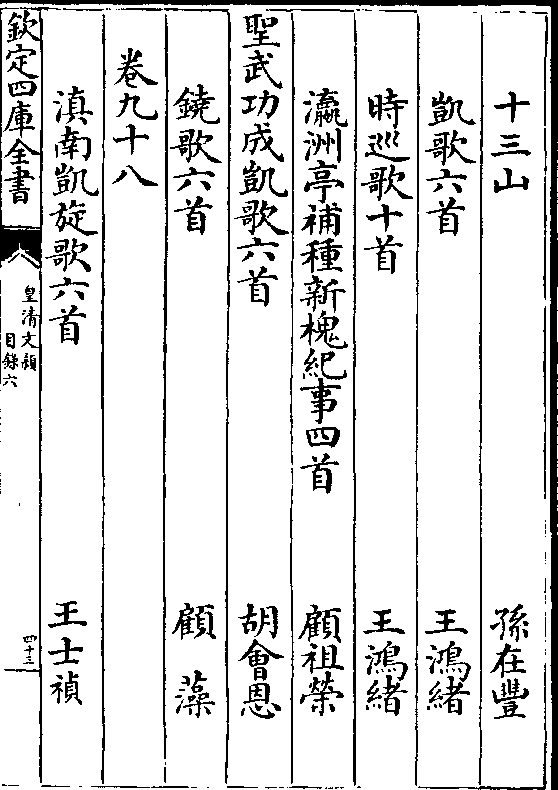 十三山 孫在豐
凱歌六首 王鴻緒
時巡歌十首 王鴻緒
瀛洲亭補種新槐紀事四首 顧祖榮
聖武功成凱歌六首 胡會恩
鐃歌六首 顧藻
卷九十八
滇南凱旋歌六首 王士禎
欽定四庫全書
皇清文穎
目錄六
四十三